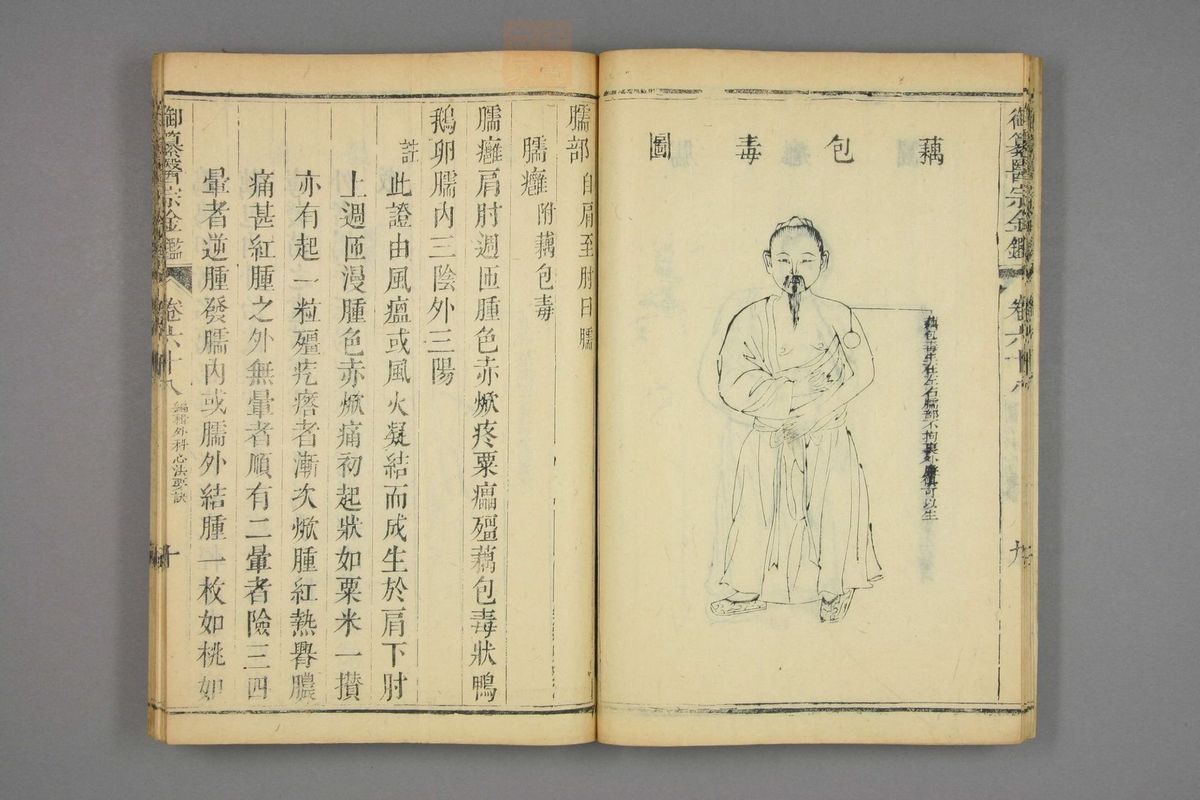 御纂醫宗金鑑
卷六十八
九
藕包毒圖
藕包毒生在左右臑部不拘裏外
臑部自肩至肘曰臑
臑癰附藕包毒
臑癰肩肘週匝腫色赤焮疼粟癟殭藕包毒狀鴨
鵝卵臑內三陰外三陽
註此證由風瘟或風火凝結而成生於肩下肘
上週匝漫腫色赤焮痛初起狀如粟米一攅
亦有起一粒殭疙瘩者漸次焮腫紅熱臀膿
痛甚紅腫之外無暈者順有二暈者險三四
暈者逆腫發臑內或臑外結腫一枚如桃如
御纂醫宗金鑑
卷六十八
編輯外科心法要訣
十